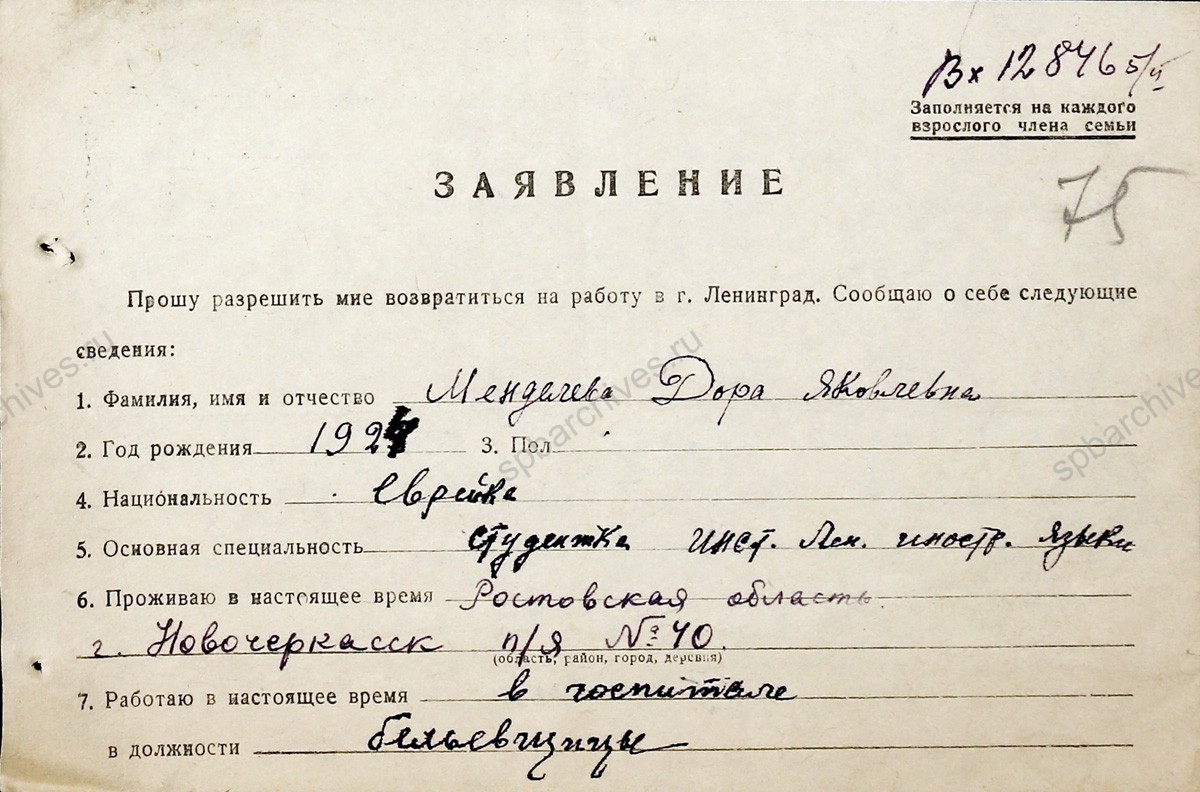 Вх 12846 5/VI
Заполняется на каждого
взрослого члена семьи
75
ЗАЯВЛЕНИЕ
Прошу разрешить мне возвратиться на работу в г. Ленинград. Сообщаю о себе следующие
сведения:
1. Фамилия, имя и отчество Менделева Дора Яковлевна
2. Год рождения 1924 3. Пол
4. Национальность Еврейка
5. Основная специальность студентка инст. Лен. иностр. языки
6. Проживаю в настоящее время Ростовская область.
г. Новочеркасск п/я № 40.
(область, район, город, деревня)
7. Работаю в настоящее время в госпитале
в должности бельевщицы
spbarchives.ru
spbarchives.ru
spbarchives.ru